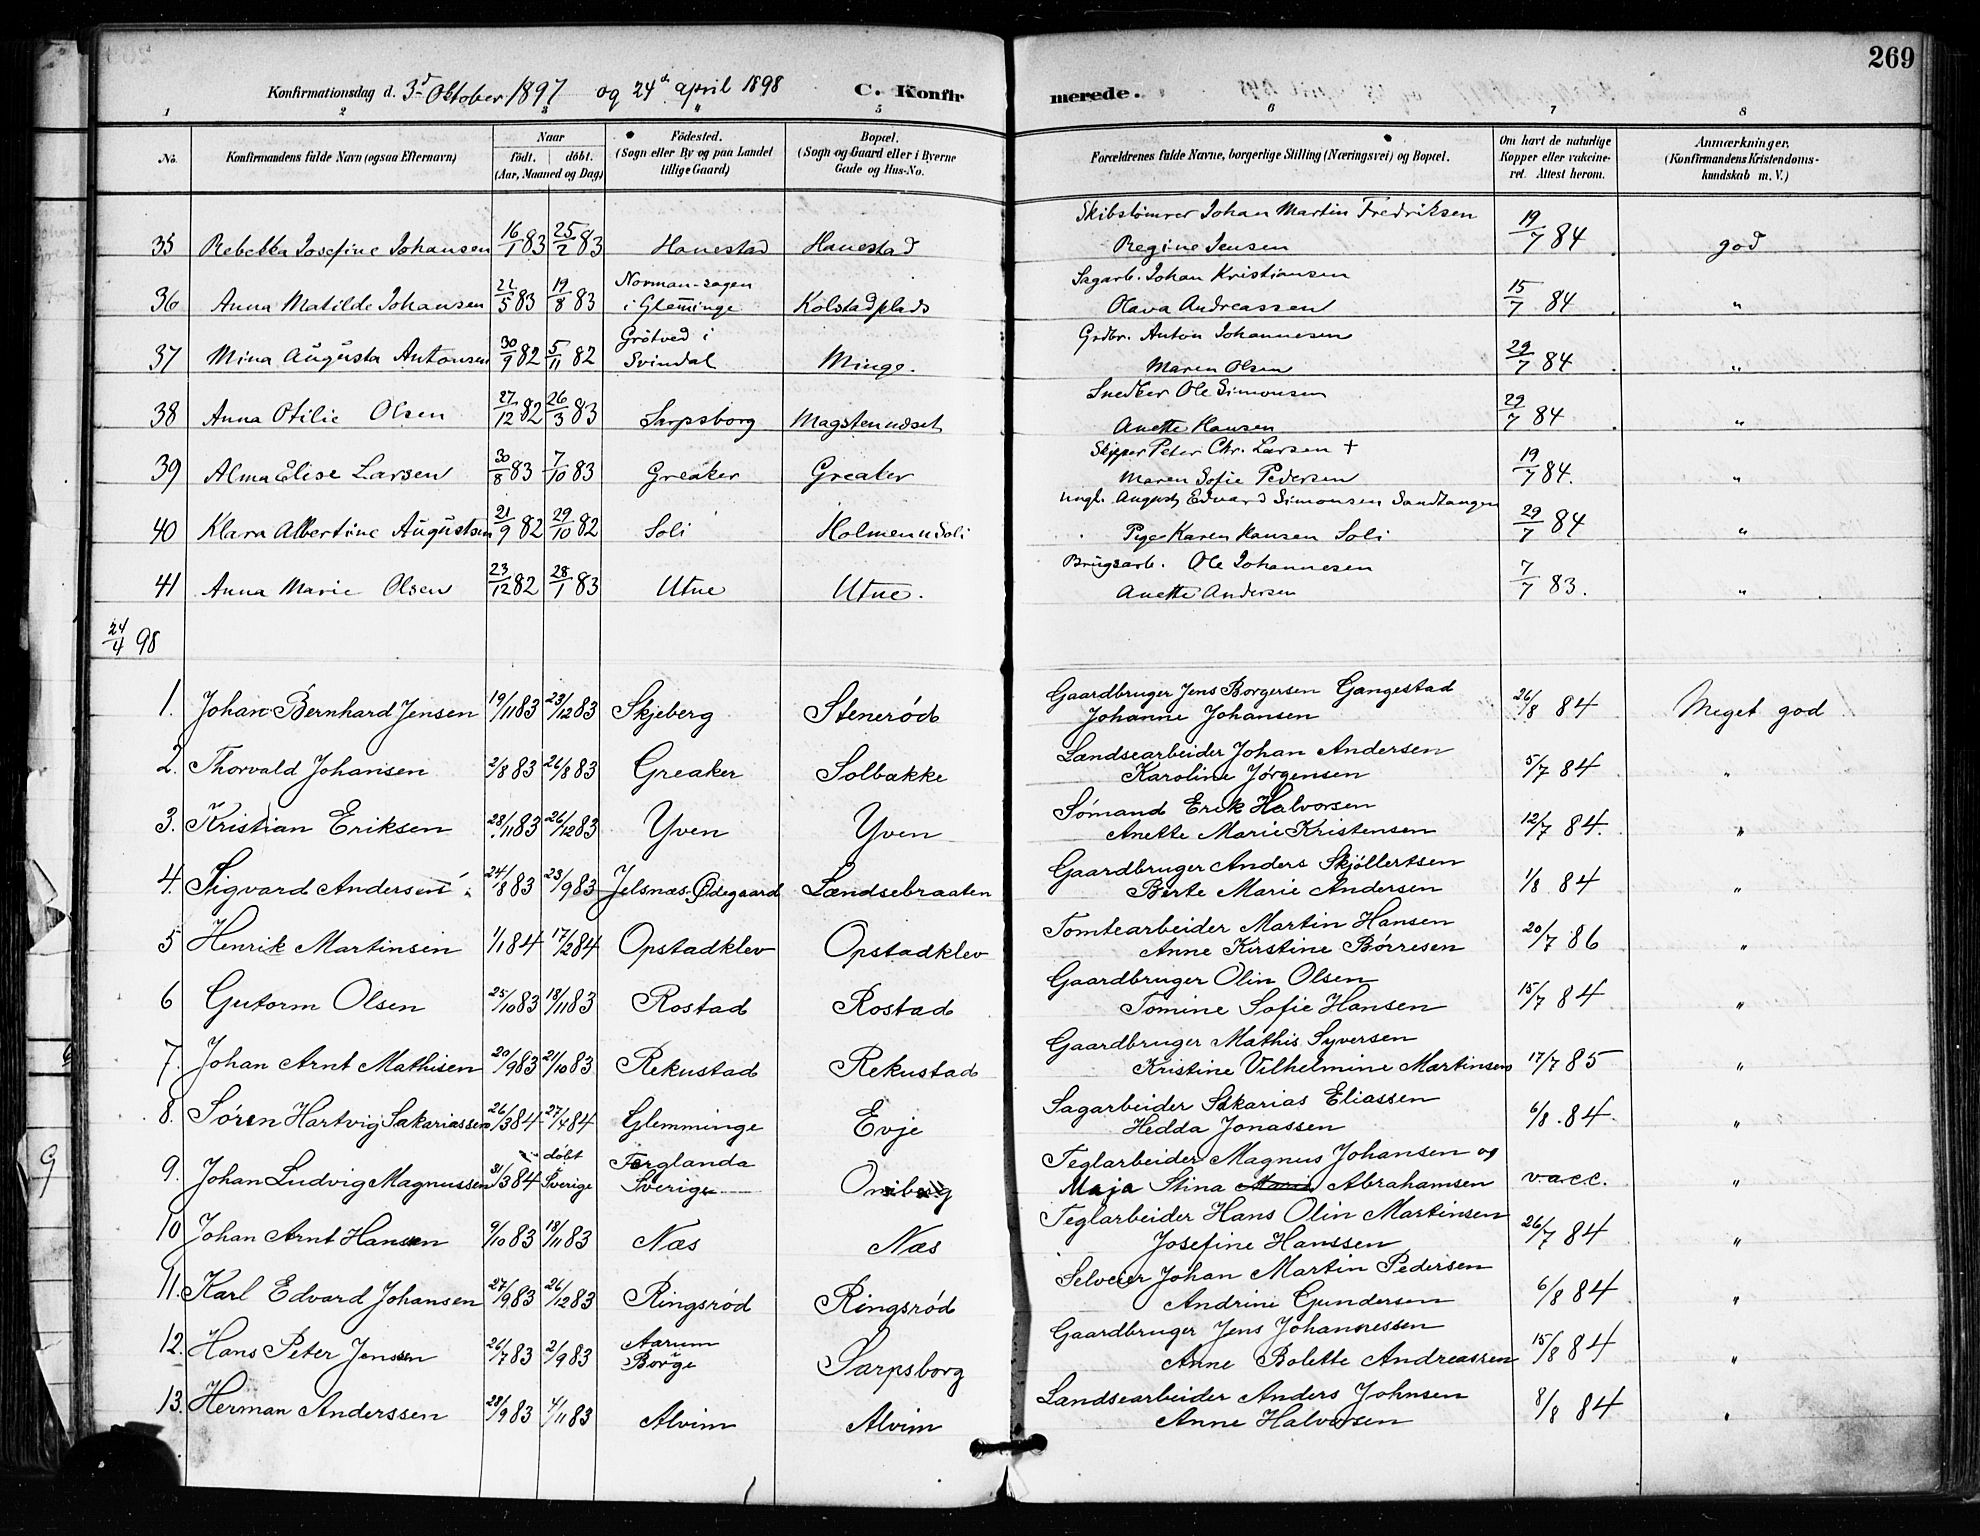 269
Konfirmationsdag d. 3d Oktober 1897 og 24de april 1898 C. Konfirmerede.
1 2 3 4 5 6 7 8
No. Konfirmandens fulde Navn (ogsaa Efternavn) Naar født. døbt. (Aar, Maaned og Dag) Fødested. (Sogn eller By og paa Landet tillige Gaard) Bopæl. (Sogn og Gaard eller i Byerne Gade og Hus-No. Forældrenes fulde Navne, borgerlige Stilling (Næringsvei) og Bopæl. Om havt de naturlige Kopper eller vakcineret. Attest herom. Anmærkninger. (Konfirmandens Kristendomskundskab m. V.)
Skibstømrer Johan Martin Fredriksen
35 Rebekka Josefine Johansen 16/1 83 25/2 83 Hanestad Hanestad Regine Jensen 19/7 84 god
Norman-sagen Sagarb. Johan Kristiansen
36 Anna Matilde Johansen 22/5 83 19/8 83 i Glemminge Kolstadplads Olava Andreassen 15/7 84 "
Grötved i Grdbr. Anton Johannesen
37 Mina Augusta Antonsen 30/9 82 5/11 82 Svindal Minge. Maren Olsen 29/7 84 "
Snedker Ole Simonsen
38 Anna Otilie Olsen 27/12 82 26/3 83 Sarpsborg Magstenudset Anette Hansen 29/7 84 "
Skipper Peter Chr. Larsen †
39 Alma Elise Larsen 30/8 83 7/10 83 Greaker Greaker Maren Sofie Pedersen 19/7 84. "
Ungk. August Edvard Simonsen Sandtangen
40 Klara Albertine Augustsen 21/9 82 29/10 82 Soli Holmen u Soli Pige Karen Hansen Soli 29/7 84 "
Brugsarb. Ole Johannesen
41 Anna Marie Olsen 23/12 82 28/1 83 Utne Utne. Anette Andersen 7/7 83. "
24/4 98
Gaardbruger Jens Borgersen Gangestad
1. Johan Bernhard Jensen 19/11 83 23/12 83 Skjeberg Stenerød Johanne Johansen 26/8 84 Meget god
Lændsearbeider Johan Andersen
2. Thorvald Johansen 2/8 83 26/8 83 Greaker Solbakke Karoline Jørgensen 5/7 84 "
Sømand Erik Halvorsen
3. Kristian Eriksen 28/11 83 26/12 83 Yven Yven Anette Marie Kristensen 12/7 84. "
Gaardbruger Anders Skjøllertsen
4. Sigvard Andersen 24/8 83 23/9 83 Jelsnæs-Ødegaard Lændsebraaten Berte Marie Andersen 1/8 84 "
Tomtearbeider Martin Hansen
5 Henrik Martinsen 1/1 84 17/2 84 Opstadklev Opstadklev Anne Kirstine Børresen 20/7 86 "
Gaardbruger Olin Olsen
6 Gutorm Olsen 25/10 83 18/11 83 Rostad Rostad Tomine Sofie Hansen 15/7 84 "
Gaardbruger Mathis Syversen
7. Johan Arnt Mathisen 20/9 83 21/10 83 Rekustad Rekustad Kristine Vilhelmine Martinsen 17/7 85 "
Sagarbeider Sakarias Eliassen
8. Søren Hartvig Sakariassen 26/3 84 27/4 84 Glemminge Evje Hedda Jonassen 6/8 84 "
døbt Torglanda Teglarbeider Magnus Johansen og
9. Johan Ludvig Magnussen 31/3 84 Sverige Sverige Maja Stina Abrahamsen vacc. "
Teglarbeider Hans Olin Martinsen
10 Johan Arnt Hansen 9/10 83 18/11 83 Næs Næs Josefine Hanssen 26/7 84 "
Selveier Johan Martin Pedersen
11. Karl Edvard Johansen 27/9 83 26/12 83 Ringsrød Ringsrød Andrine Gundersen 6/8 84 "
Aarum Gaardbruger Jens Johannessen
12. Hans Peter Jensen 26/7 83 2/9 83 Borge Sarpsborg Anne Bolette Andreassen 15/8 84 "
Landsearbeider Anders Johnsen
13. Herman Anderssen 28/9 83 4/11 83 Alvim Alvim Anne Halvorsen 8/8 84 "